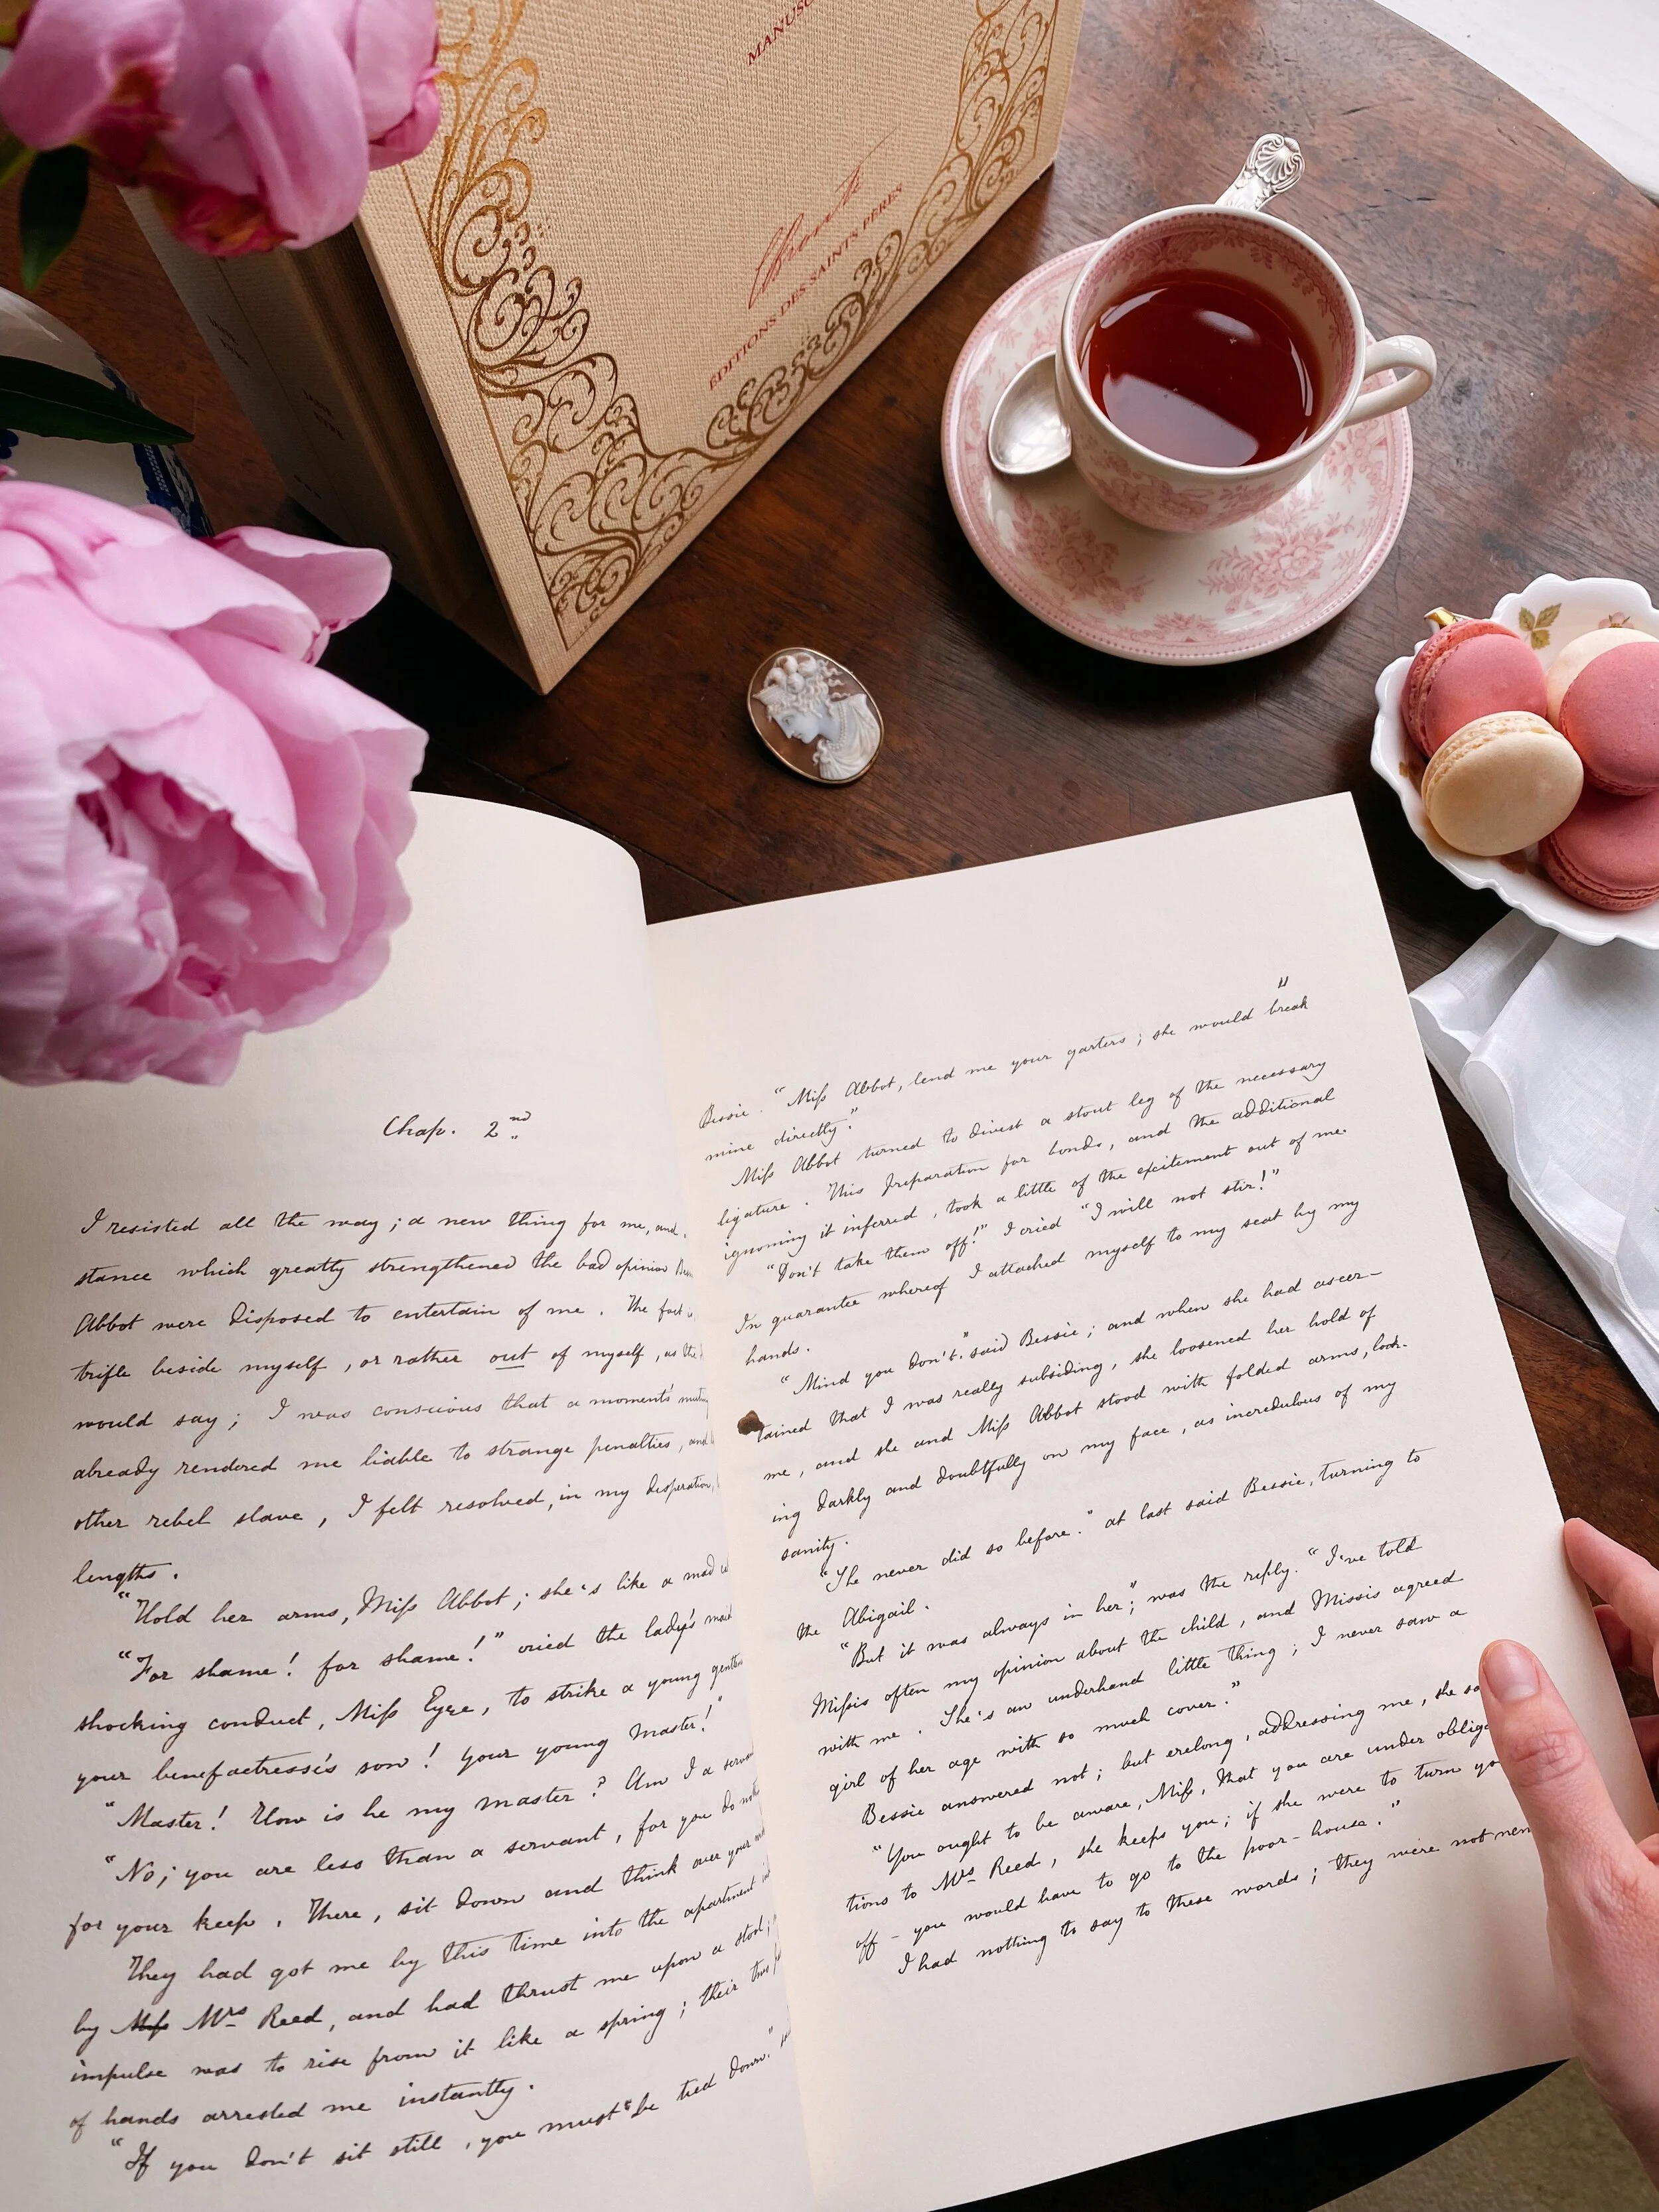 MANUSC
Charlotte
EDITIONS DES SAINTS PERES
Chap. 2nd
I resisted all the way; a new thing for me, and
stance which greatly strengthened the bad opinion
Abbot were disposed to entertain of me. The fact
trifle beside myself, or rather out of myself, as the
would say; I was conscious that a moment's
already rendered me liable to strange penalties, and
other rebel slave, I felt resolved, in my desperation,
lengths.
"Hold her arms, Miss Abbot; she's like a mad
"For shame! for shame!" cried the lady's
shocking conduct, Miss Eyre, to strike a young
your benefactresse's son! Your young master!"
"Master! How is he my master? Am I a
"No; you are less than a servant, for you do
for your keep. There, sit down and think over your
They had got me by this time into the apartment
by Miss Mrs Reed, and had thrust me upon a stool;
impulse was to rise from it like a spring; their
of hands arrested me instantly.
"If you don't sit still, you must "be tied down."
"
Bessie. "Miss Abbot, lend me your garters; she would break
mine directly."
Miss Abbot turned to divest a stout leg of the necessary
ligature. This preparation for bonds, and the additional
ignominy it inferred, took a little of the excitement out of me.
"Don't take them off!" I cried "I will not stir!"
In guarantee whereof I attached myself to my seat by my
hands.
"Mind you don't." said Bessie; and when she had ascer-
tained that I was really subsiding, she loosened her hold of
me, and she and Miss Abbot stood with folded arms, look-
ing darkly and doubtfully on my face, as incredulous of my
sanity.
"She never did so before." at last said Bessie, turning to
the Abigail.
"But it was always in her"; was the reply. "I've told
Missis often my opinion about the child, and Missis agreed
with me. She's an underhand little thing; I never saw a
girl of her age with so much cover."
Bessie answered not; but erelong, addressing me, she
"You ought to be aware, Miss, that you are under obliga
tions to Mrs Reed, she keeps you; if she were to turn yo
off - you would have to go to the poor-house."
I had nothing to say to these words; they were not new